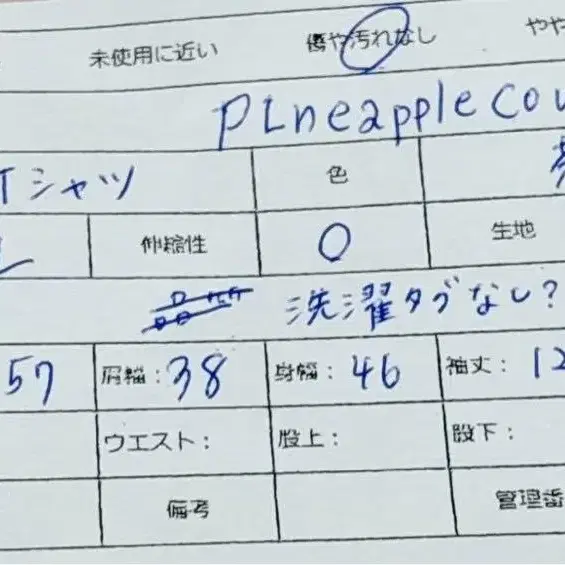 未使用に近い 傷や汚れなし やや
PIneapple cou
Tシャツ 色
伸縮性 ○ 生地
洗濯タグなし?
57 肩幅:38 身幅:46 袖丈:12
ウエスト: 股上: 股下:
備考 管理番